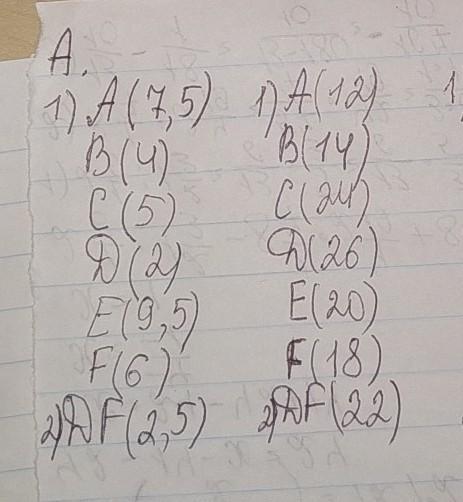 A.
1) A(7,5) 1) A(12) 1
B(4) B(14)
C(5) C(24)
D(2) D(26)
E(9,5) E(20)
F(6) F(18)
2) DF(2,5) 2) DF(22)